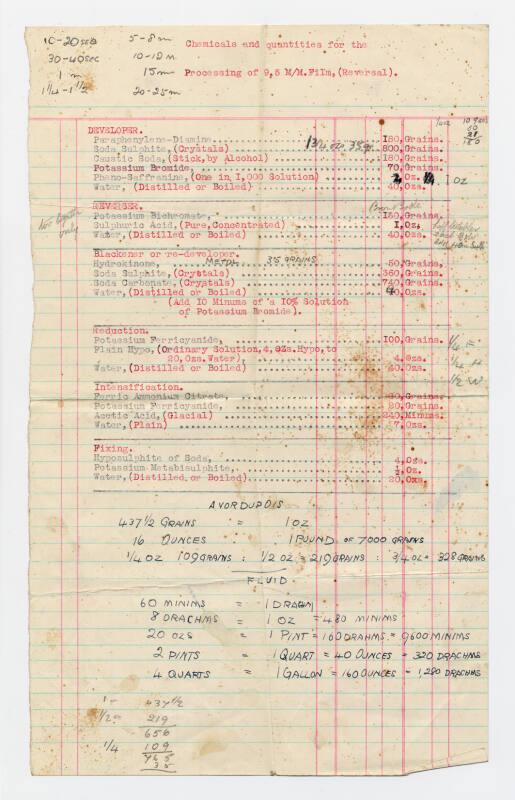 10-20 secs 5-8m
Chemicals and quantities for the
30-40 sec 10-12m
1 m 15m Processing of 9,5 M/M.Film,(Reversal).
1¼-1½ 20-25m
DEVELOPER.
Paraphenylene-Diamine 180,Grains.
Soda Sulphite,(Crystals) 1¾ ozs 35gr 800,Grains.
Caustic Soda,(Stick,by Alcohol) 180,Grains.
Potassium Bromide, 70,Grains.
Pheno-Saffranine,(One in 1,000 Solution) Oz. 1 oz
Water,(Distilled or Boiled) 40,Ozs.
REVERSER.
Potassium Bichromate, 180,Grains.
Sulphuric Acid,(Pure,Concentrated) 1,Oz.
Water,(Distilled or Boiled) 40,Ozs.
only
Blackener or re-developer.
Hydrokinone, METOL 35 GRAINS 50,Grains.
Soda Sulphite,(Crystals) 360,Grains.
Soda Carbonate,(Crystals) 740,Grains.
Water,(Distilled or Boiled) 40,Ozs.
(Add 10 Minums of a 10% Solution
of Potassium Bromide).
Reduction.
Potassium Ferricyanide, 100,Grains.
Plain Hypo,(Ordinary Solution,4,OZs.Hypo,to
20,Ozs.Water), 4,Ozs.
Water,(Distilled or Boiled) 40,Ozs.
½ W
Intensification.
Ferric Ammonium Citrate, Grains.
Potassium Ferricyanide, 80,Grains.
Acetic Acid,(Glacial) 240,Minums.
Water,(Plain) 7,Ozs.
Fixing.
Hyposulphite of Soda, 4,Ozs.
Potassium Metabisulphite, ½,Oz.
Water,(Distilled or Boiled) 20,Ozs.
AVORDUPOIS
437½ GRAINS = 1 OZ
16 OUNCES 1 POUND OF 7000 GRAINS
¼ OZ 109 GRAINS : ½ OZ = 219 GRAINS : ¾ OZ = 328 GRAINS
FLUID
60 MINIMS = 1 DRACHM
8 DRACHMS = 1 OZ = 480 MINIMS
20 OZS = 1 PINT = 160 DRAHMS = 9600 MINIMS
2 PINTS = 1 QUART = 40 OUNCES = 320 DRACHMS
4 QUARTS = 1 GALLON = 160 OUNCES = 1,280 DRACHMS
1 - 437½
½ = 219
656
¼ 109
765
35